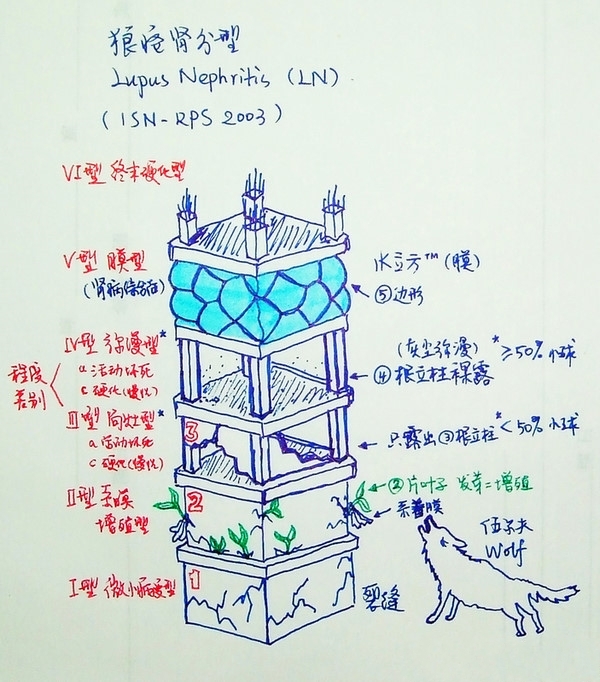 狼疮肾分型
Lupus Nephritis (LN)
(ISN-RPS 2003)
VI型 终末硬化型
V型 膜型
(肾病综合征)
水立方™ (膜)
⑤边形
IV型 弥漫型*
a 活动坏死
c 硬化(慢性)
(灰尘弥漫)* ≥50%小球
④根立柱裸露
程度
差别
III型 局灶型*
a 活动坏死
c 硬化(慢性)
3
只露出③根立柱* <50%小球
II型 系膜
增殖型
2
②片叶子 发芽=增殖
系膜
I型 微小病变型
1
裂缝
伍尔夫
Wolf